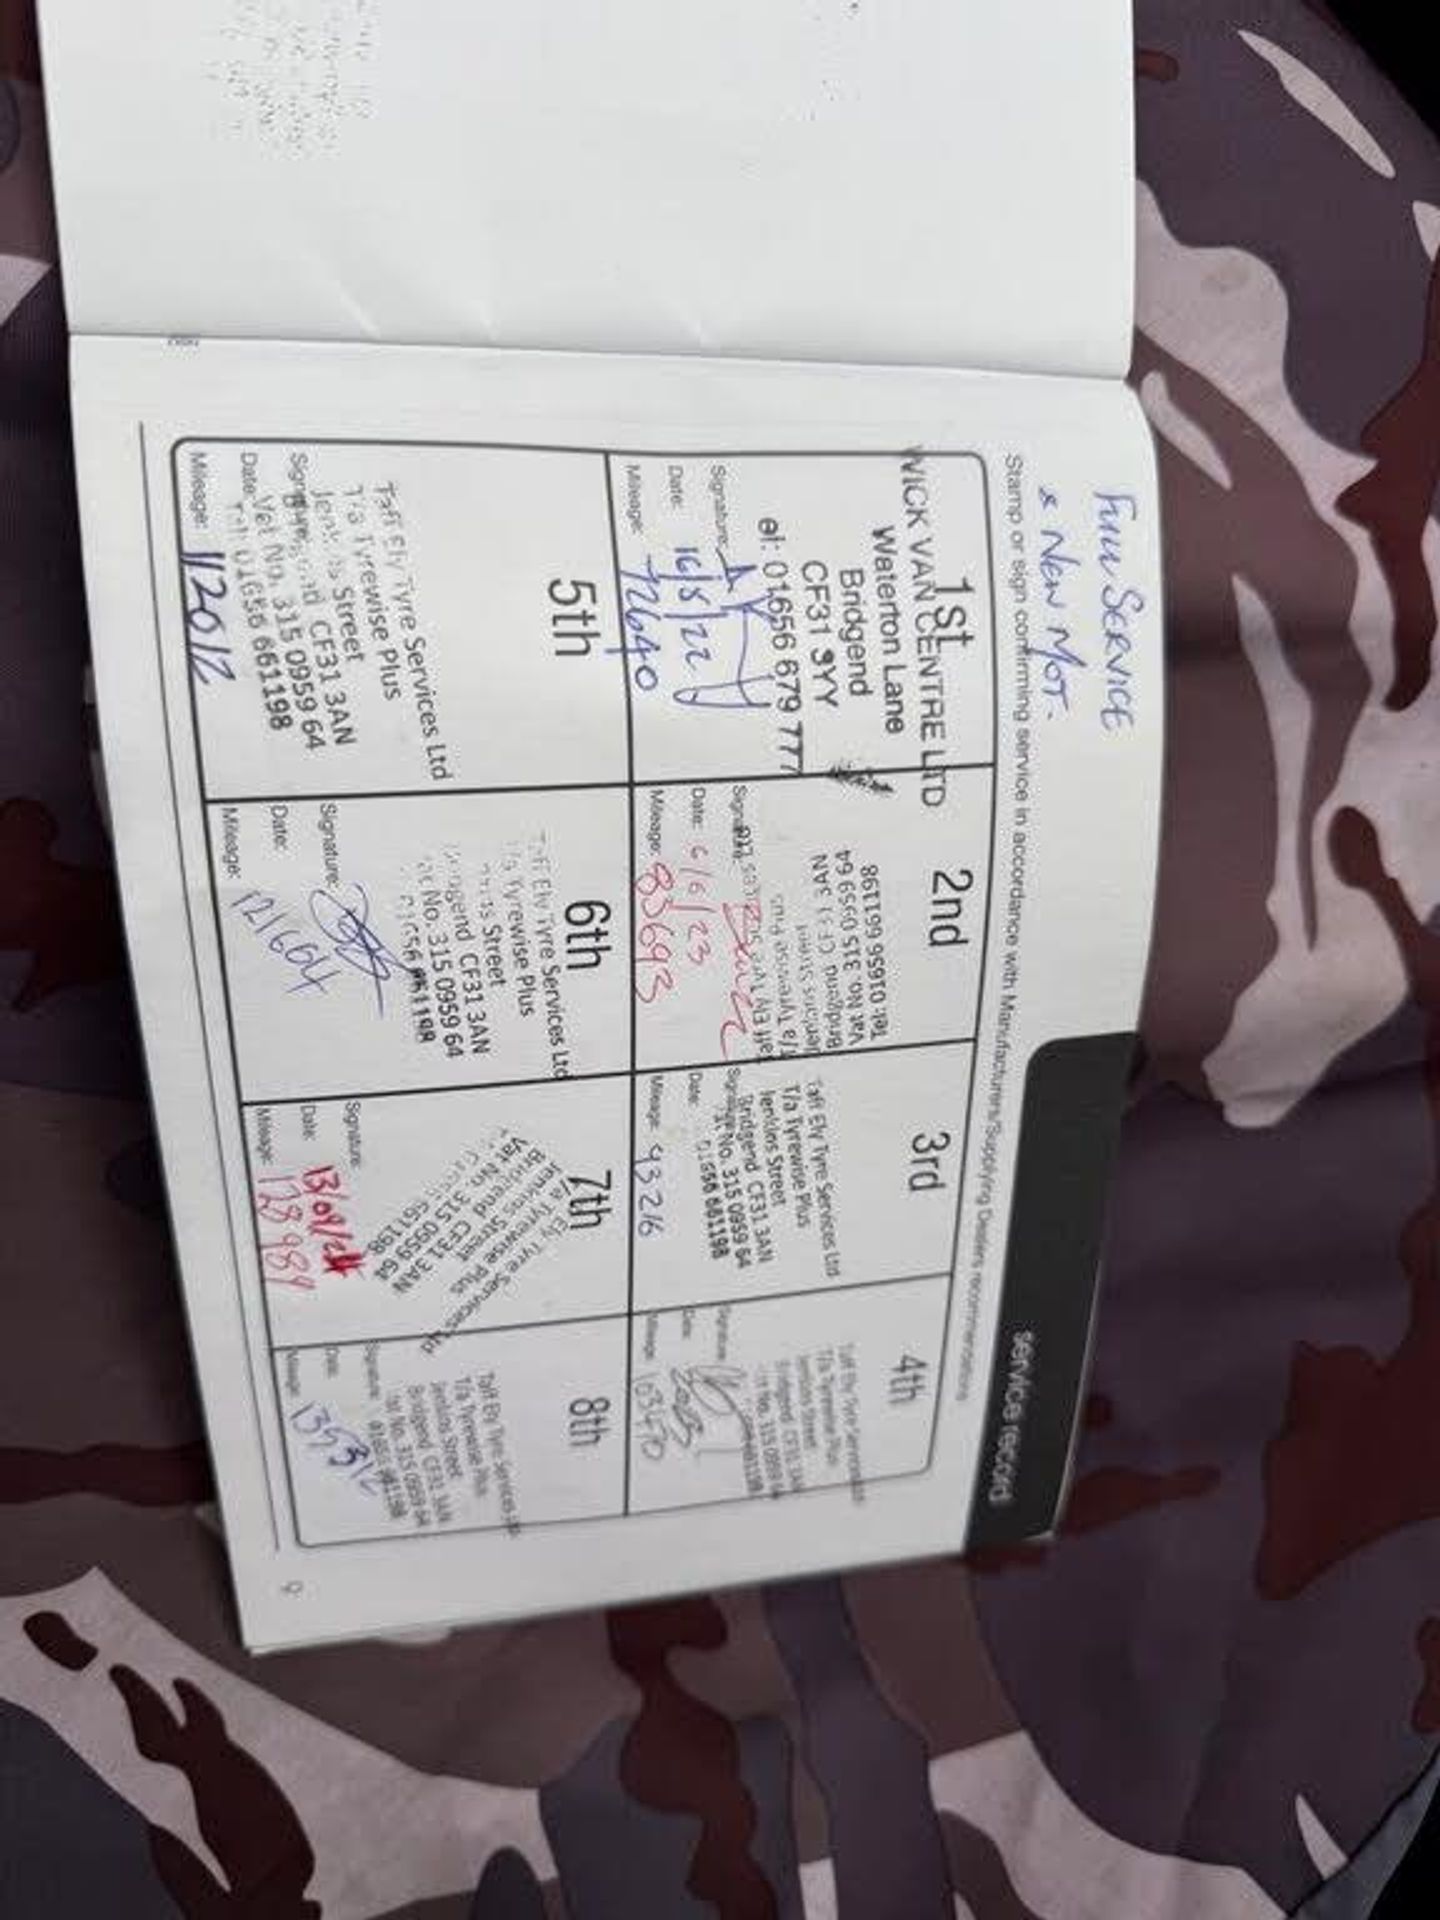 Full SERVICE
& New MOT.
service record
Stamp or sign confirming service in accordance with Manufacturers/Supplying Dealers recommendations
1st
WICK VAN CENTRE LTD
Waterton Lane
Bridgend
CF31 9YY
el: 01656 679 777
Signature:
Date: 16/5/22
Mileage: 72640
2nd
Taff Ely Tyre Services Ltd
T/a Tyrewise Plus
Jenkins Street
Bridgend CF31 3AN
Vat No. 315 0959 64
Tel: 01656 661198
Date: 6/6/23
Mileage: 83693
3rd
Taff Ely Tyre Services Ltd
T/a Tyrewise Plus
Jenkins Street
Bridgend CF31 3AN
No. 315 0959 64
01656 661198
Date:
Mileage: 93216
4th
Taff Ely Tyre Services
T/a Tyrewise Plus
Jenkins Street
Bridgend CF31 3AN
No. 315 0959 64
Signature:
Date:
Mileage: 103470
5th
Taff Ely Tyre Services Ltd
T/a Tyrewise Plus
Jenkins Street
CF31 3AN
Vat No. 315 0959 64
Tel: 01656 661198
Date:
Mileage: 112012
6th
Taff Ely Tyre Services Ltd
T/a Tyrewise Plus
Street
CF31 3AN
No. 315 0959 64
01656 661198
Signature:
Date:
Mileage: 121604
7th
Ely Tyre Services
T/a Tyrewise Plus
Jenkins Street
Bridgend CF31 3AN
Vat No. 315 0959 64
661198
Signature:
Date: 13/09/24
Mileage: 128989
8th
Taff Ely Tyre Services
T/a Tyrewise Plus
Jenkins Street
Bridgend CF31 3AN
No. 315 0959 64
01656 661198
Signature:
Date:
Mileage:
9